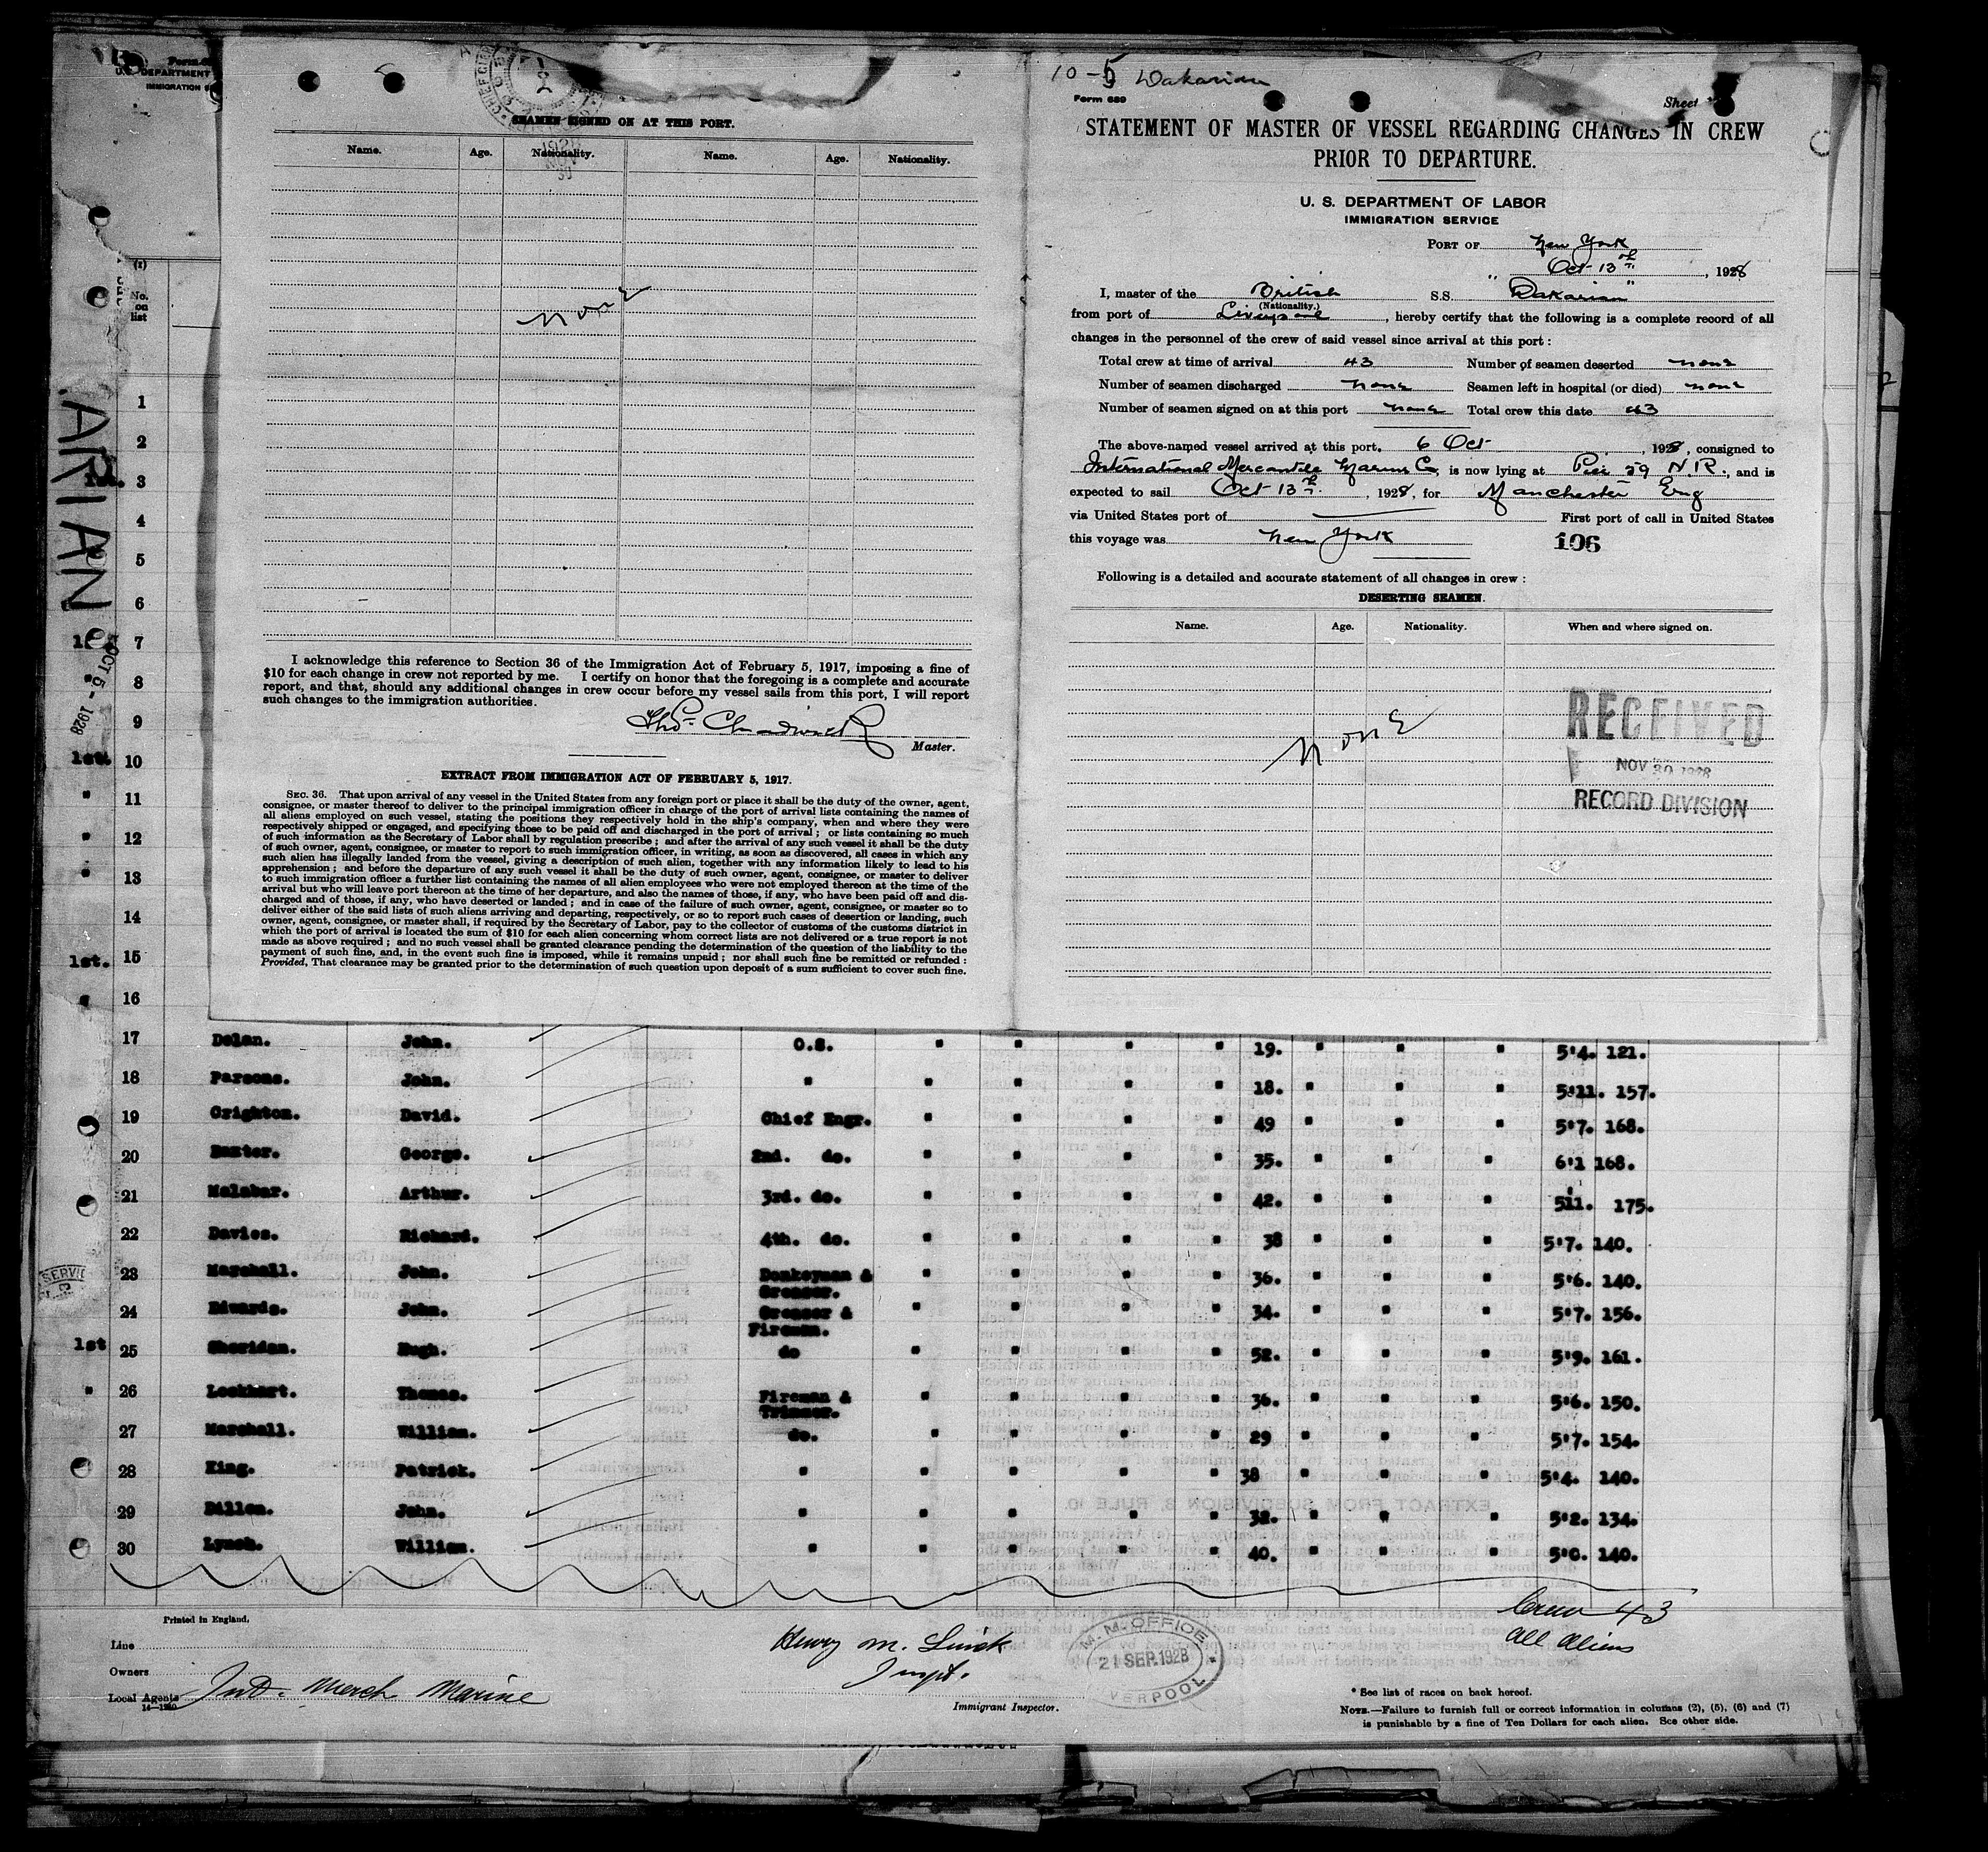 U. S. DEPARTMENT
IMMIGRATION
(1)
No.
on
list
ARIAN
OCT 5 - 1928
SEAMEN SIGNED ON AT THIS PORT.
Name. Age. Nationality. Name. Age. Nationality.
None
I acknowledge this reference to Section 36 of the Immigration Act of February 5, 1917, imposing a fine of
$10 for each change in crew not reported by me. I certify on honor that the foregoing is a complete and accurate
report, and that, should any additional changes in crew occur before my vessel sails from this port, I will report
such changes to the immigration authorities.
Thos. Chadwick
Master.
EXTRACT FROM IMMIGRATION ACT OF FEBRUARY 5, 1917.
SEC. 36. That upon arrival of any vessel in the United States from any foreign port or place it shall be the duty of the owner, agent,
consignee, or master thereof to deliver to the principal immigration officer in charge of the port of arrival lists containing the names of
all aliens employed on such vessel, stating the positions they respectively hold in the ship's company, when and where they were
respectively shipped or engaged, and specifying those to be paid off and discharged in the port of arrival; or lists containing so much
of such information as the Secretary of Labor shall by regulation prescribe; and after the arrival of any such vessel it shall be the duty
of such owner, agent, consignee, or master to report to such immigration officer, in writing, as soon as discovered, all cases in which any
such alien has illegally landed from the vessel, giving a description of such alien, together with any information likely to lead to his
apprehension; and before the departure of any such vessel it shall be the duty of such owner, agent, consignee, or master to deliver
to such immigration officer a further list containing the names of all alien employees who were not employed thereon at the time of the
arrival but who will leave port thereon at the time of her departure, and also the names of those, if any, who have been paid off and dis-
charged and of those, if any, who have deserted or landed; and in case of the failure of such owner, agent, consignee, or master so to
deliver either of the said lists of such aliens arriving and departing, respectively, or so to report such cases of desertion or landing, such
owner, agent, consignee, or master shall, if required by the Secretary of Labor, pay to the collector of customs of the customs district in
which the port of arrival is located the sum of $10 for each alien concerning whom correct lists are not delivered or a true report is not
made as above required; and no such vessel shall be granted clearance pending the determination of the question of the liability to the
payment of such fine, and, in the event such fine is imposed, while it remains unpaid; nor shall such fine be remitted or refunded:
Provided, That clearance may be granted prior to the determination of such question upon deposit of a sum sufficient to cover such fine.
10-5 Dakarian
Form 689 Sheet
STATEMENT OF MASTER OF VESSEL REGARDING CHANGES IN CREW
PRIOR TO DEPARTURE.
U. S. DEPARTMENT OF LABOR
IMMIGRATION SERVICE
PORT OF New York
Oct 13th, 1928
I, master of the British S.S. "Dakarian"
(Nationality.)
from port of Liverpool, hereby certify that the following is a complete record of all
changes in the personnel of the crew of said vessel since arrival at this port:
Total crew at time of arrival 43 Number of seamen deserted none
Number of seamen discharged none Seamen left in hospital (or died) none
Number of seamen signed on at this port none Total crew this date 43
The above-named vessel arrived at this port, 6 Oct, 1928, consigned to
International Mercantile Marine Co, is now lying at Pier 59 N.R., and is
expected to sail Oct 13th, 1928, for Manchester Eng
via United States port of First port of call in United States
this voyage was New York 106
Following is a detailed and accurate statement of all changes in crew:
DESERTING SEAMEN.
Name. Age. Nationality. When and where signed on.
None
RECEIVED
NOV 30 1928
RECORD DIVISION
1
2
3
4
5
6
7
8
9
1st. 10
" 11
" 12
" 13
14
1st. 15
" 16
17 Dolan. John. O.S. " " " " 19. " " " 5'4. 121.
18 Parsons. John. " " " " " 18. " " " 5'11. 157.
19 Crighton. David. Chief Engr. " " " " 49 " " " 5'7. 168.
20 Baxter. George. 2nd. do. " " " " 35. " " " 6'1 168.
21 Malabar. Arthur. 3rd. do. " " " " 42. " " " 5'11. 175.
22 Davies. Richard. 4th. do. " " " " 38 " " " 5'7. 140.
23 Marshall. John. Donkeyman & Greaser. " " " " 36. " " " 5'6. 140.
24 Edwards. John. Greaser & Fireman. " " " " 34. " " " 5'7. 156.
1st 25 Sheridan. Hugh. do " " " " 52. " " " 5'9. 161.
" 26 Lockhart. Thomas. Fireman & Trimmer. " " " " 36. " " " 5'6. 150.
27 Marshall. William. do. " " " " 29 " " " 5'7. 154.
28 King. Patrick. " " " " " 38 " " " 5'4. 140.
29 Dillon. John. " " " " " 32. " " " 5'2. 134.
30 Lynch. William. " " " " " 40. " " " 5'0. 140.
Crew 43
all aliens
Printed in England.
Line
Owners
Local Agents Int. Merch Marine
Henry M.
Inspt.
Immigrant Inspector.
M. M. OFFICE
21 SEP. 1928
VERPOOL
* See list of races on back hereof.
NOTE.—Failure to furnish full or correct information in columns (2), (5), (6) and (7)
is punishable by a fine of Ten Dollars for each alien. See other side.